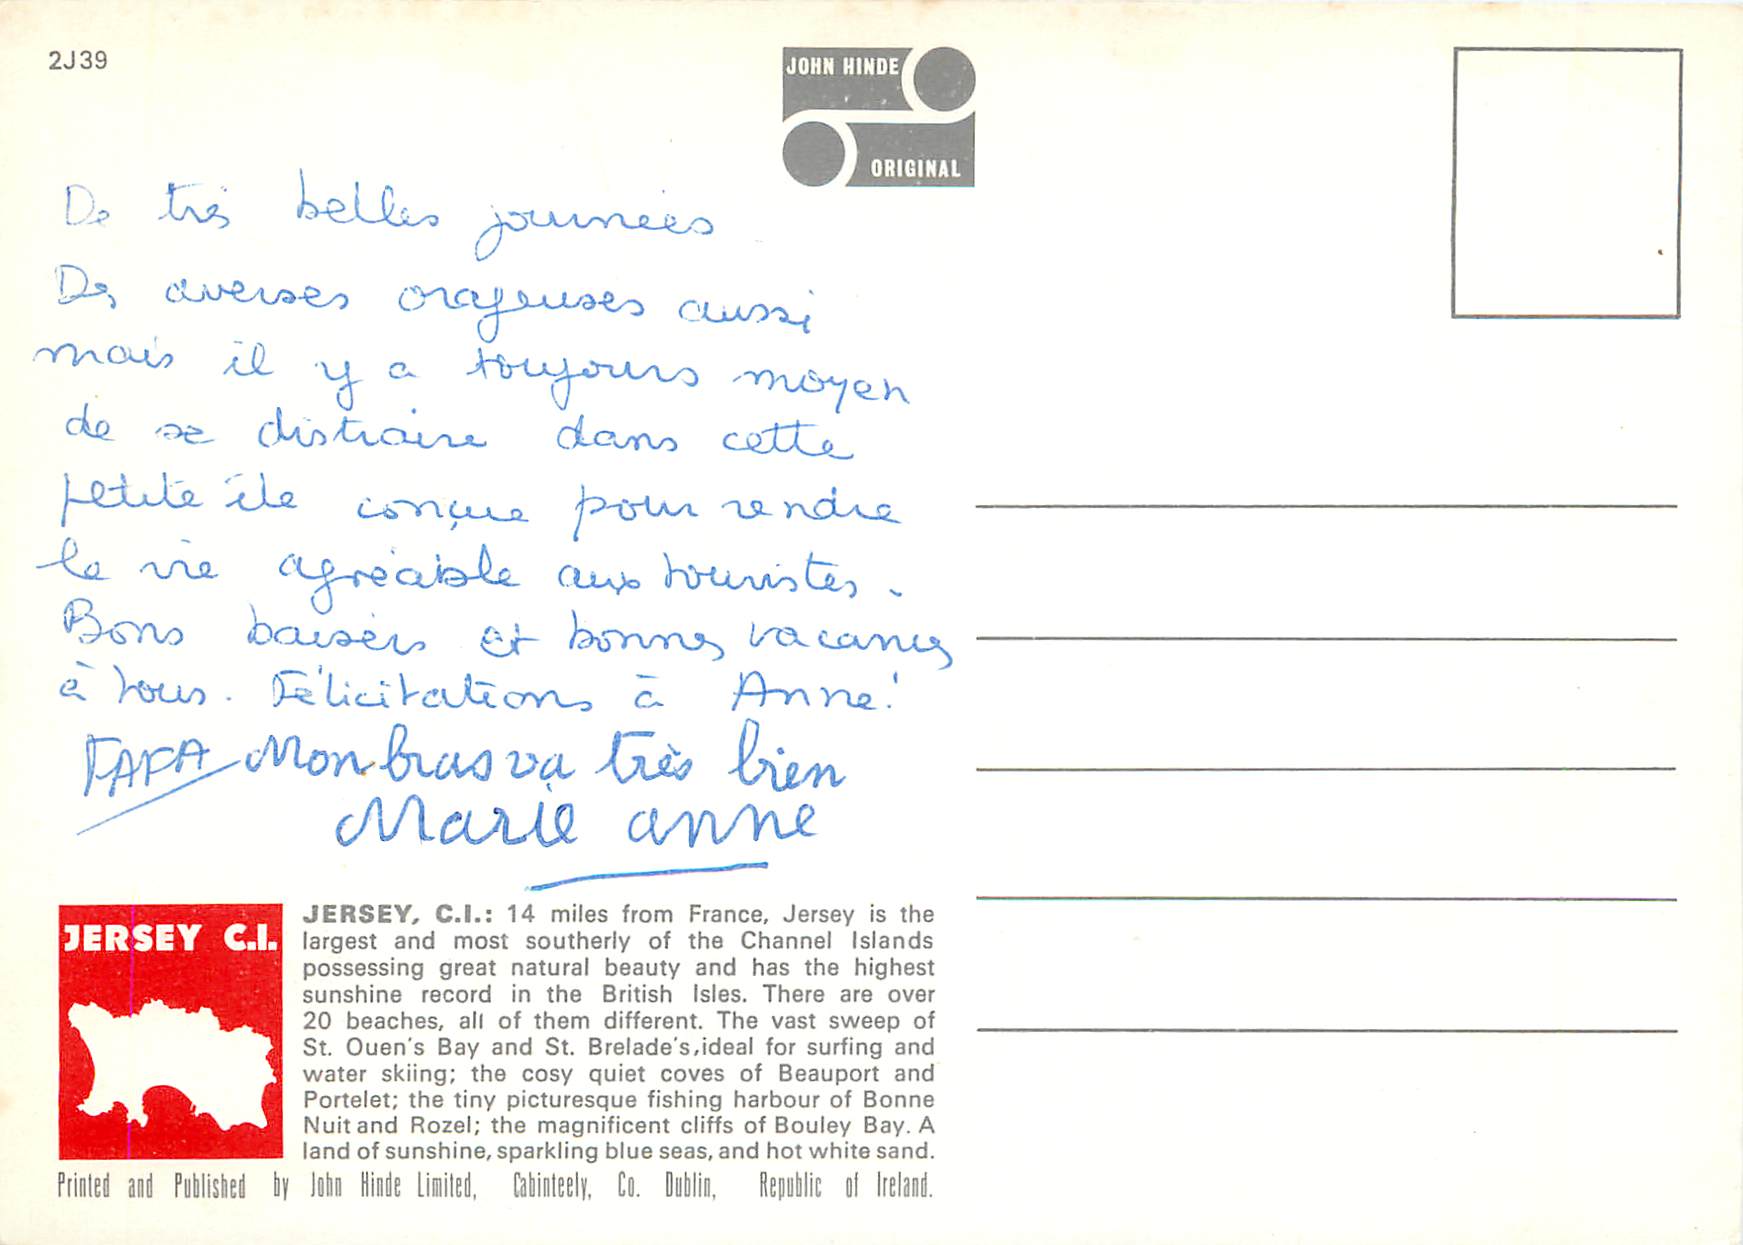 2J39
JOHN HINDE
ORIGINAL
De très belles journées
Des averses orageuses aussi
mais il y a toujours moyen
de se distraire dans cette
petite île conçue pour rendre
la vie agréable aux touristes.
Bons baisers et bonnes vacances
à tous. Félicitations à Anne!
Mon bras va très bien
Marie anne
JERSEY C.I.
JERSEY, C.I.: 14 miles from France, Jersey is the
largest and most southerly of the Channel Islands
possessing great natural beauty and has the highest
sunshine record in the British Isles. There are over
20 beaches, all of them different. The vast sweep of
St. Ouen's Bay and St. Brelade's, ideal for surfing and
water skiing; the cosy quiet coves of Beauport and
Portelet; the tiny picturesque fishing harbour of Bonne
Nuit and Rozel; the magnificent cliffs of Bouley Bay. A
land of sunshine, sparkling blue seas, and hot white sand.
Printed and Published by John Hinde Limited, Cabinteely, Co. Dublin, Republic of Ireland.